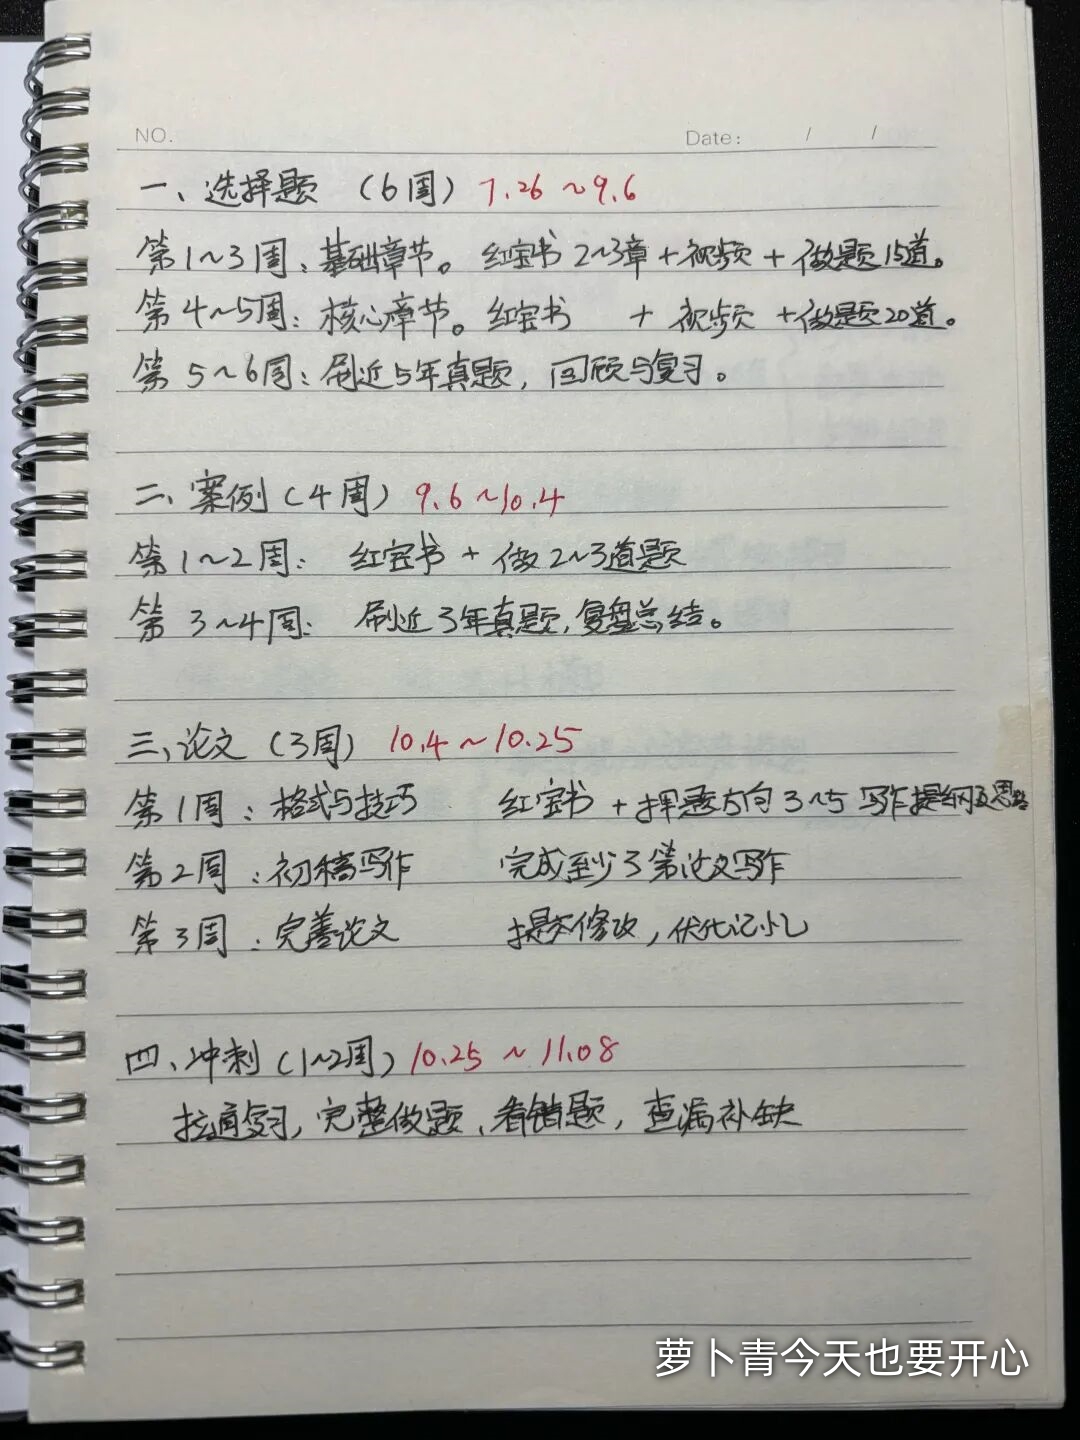 NO.
Date: / /
一、选择题 (6周) 7.26~9.6
第1~3周: 基础章节。 红宝书2~3章+视频+做题15道。
第4~5周: 核心章节。 红宝书 + 视频 +做题20道。
第5~6周: 刷近5年真题, 回顾与复习。
二、案例(4周) 9.6~10.4
第1~2周: 红宝书 + 做2~3道题
第3~4周: 刷近3年真题,复盘总结。
三、论文(3周) 10.4~10.25
第1周: 格式与技巧 红宝书 + 择题方向3~5 写作提纲及思路
第2周: 初稿写作 完成至少3篇论文写作
第3周: 完善论文 提交修改, 优化记忆
四、冲刺(1~2周) 10.25~11.08
拉通复习, 完整做题、看错题, 查漏补缺
萝卜青今天也要开心